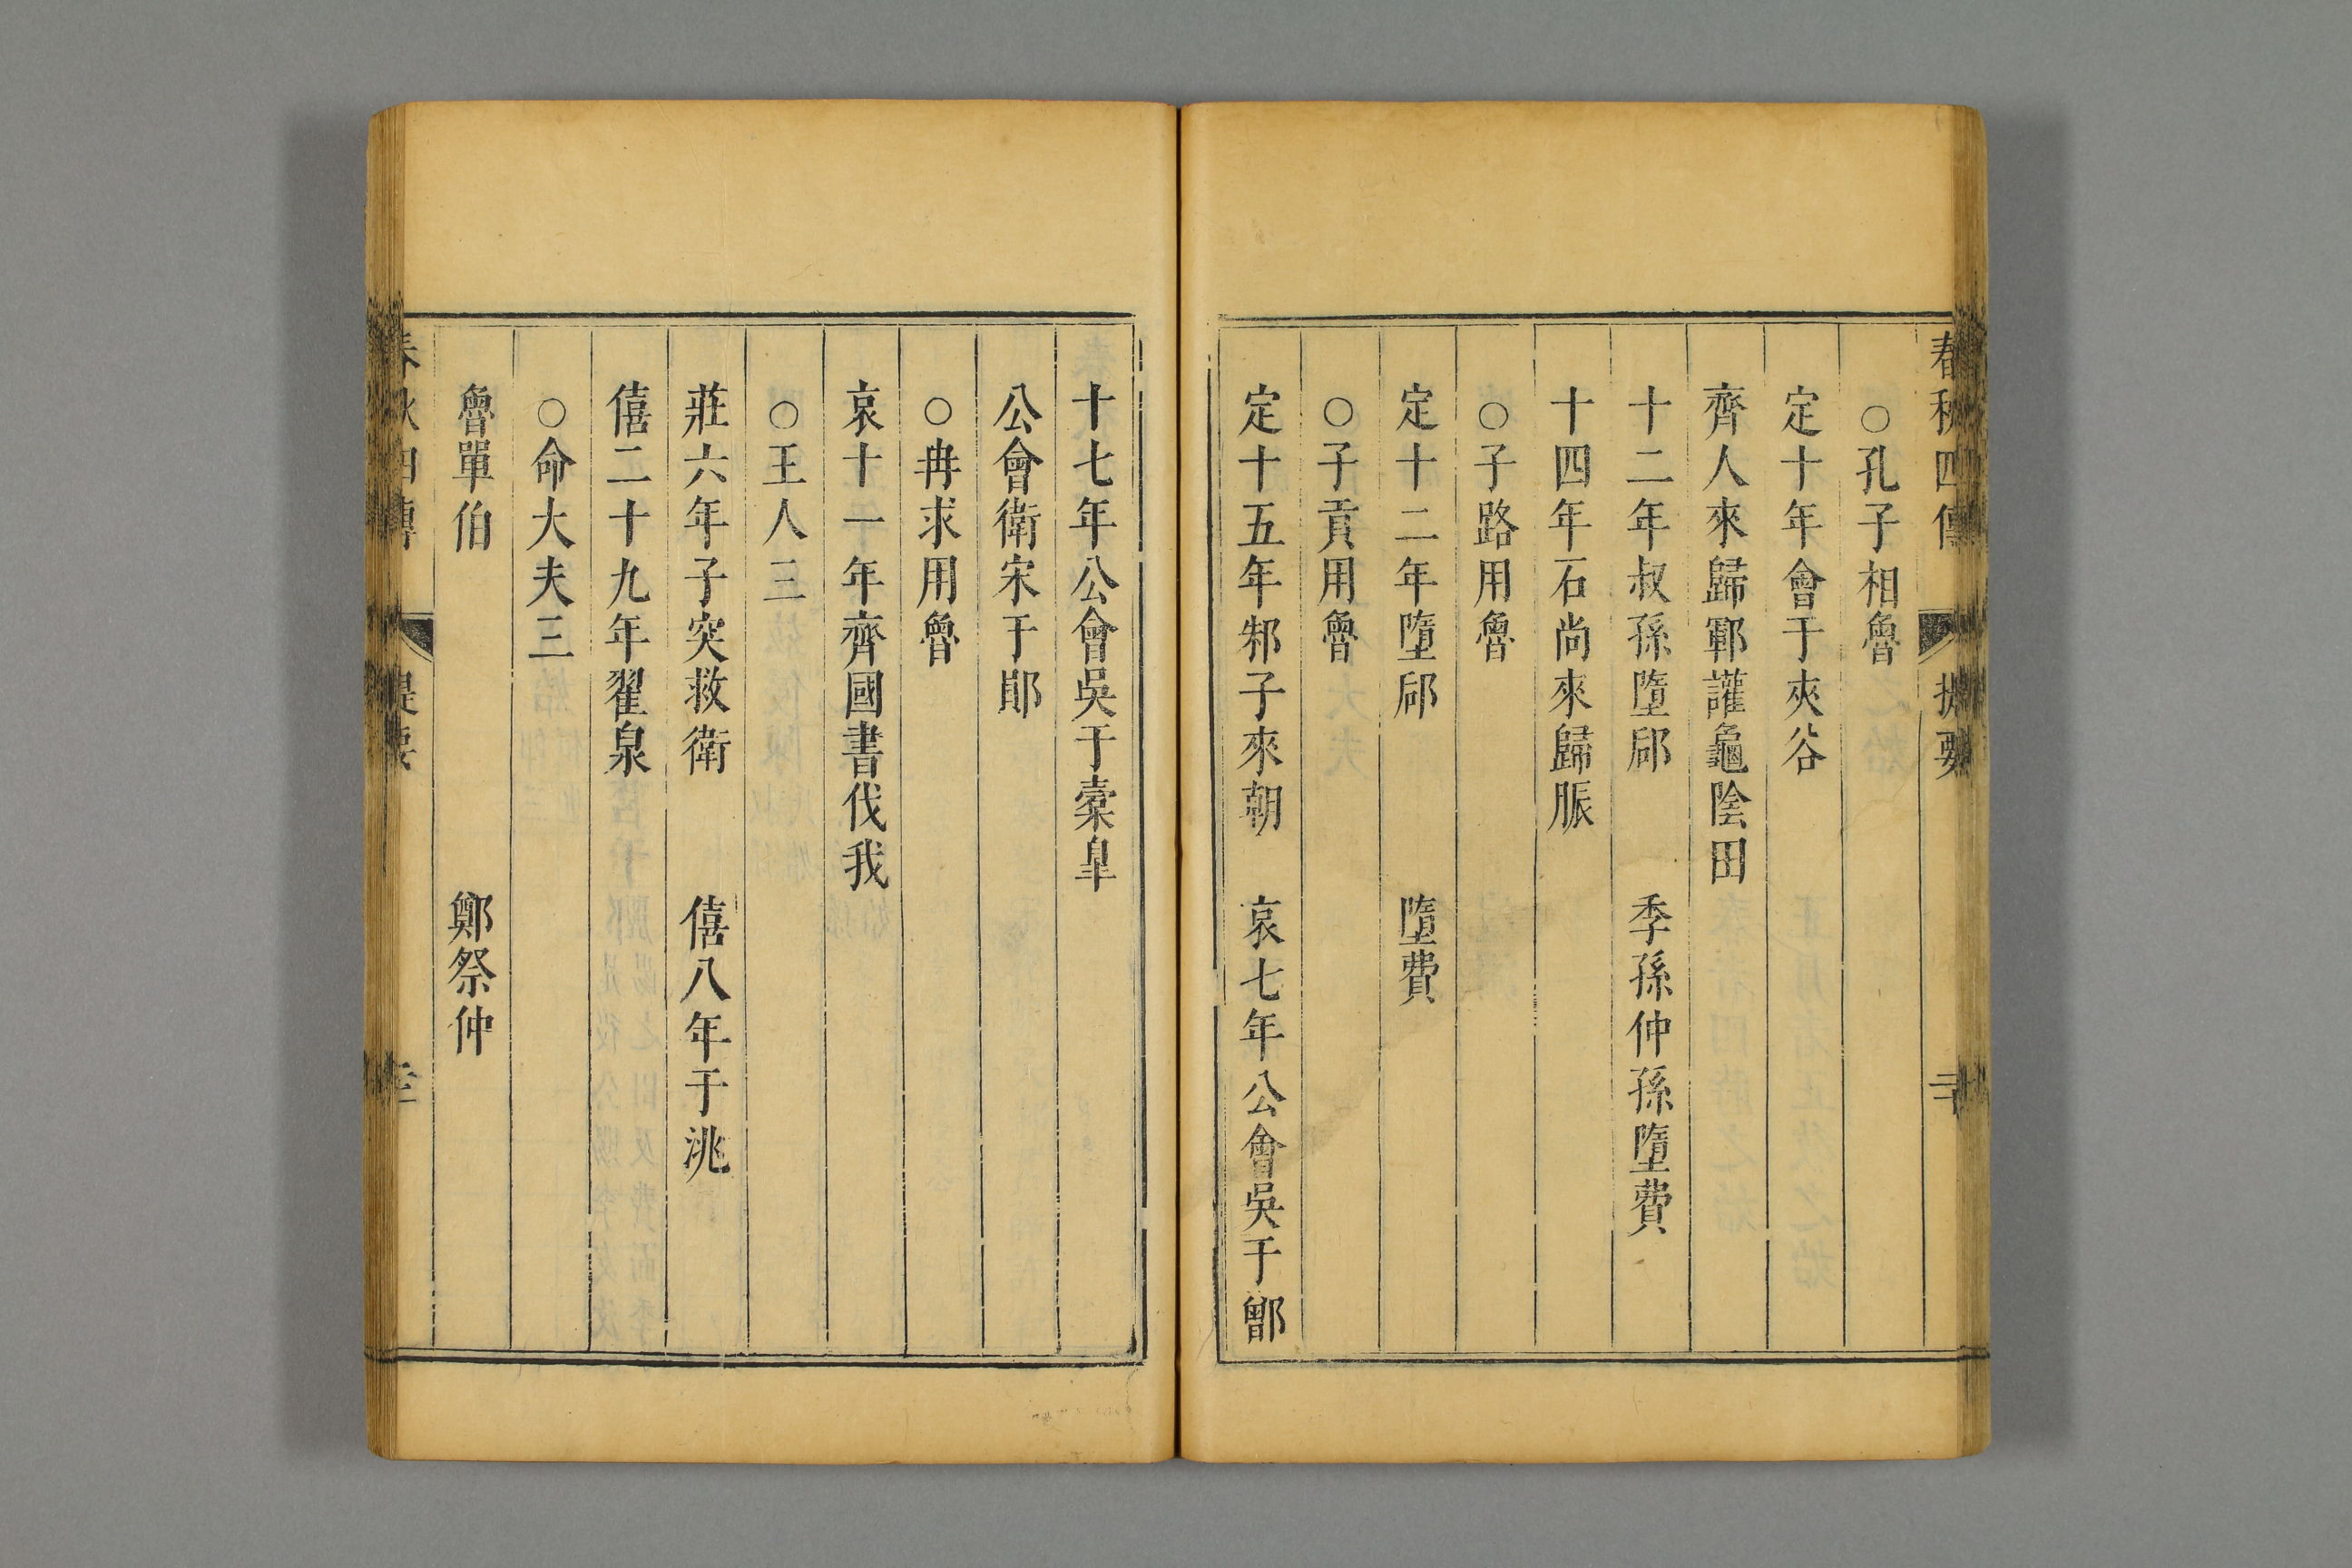 春秋四傳 提要 二十
○孔子相魯
定十年會于夾谷
齊人來歸鄆讙龜陰田
十二年叔孫墮郈 季孫仲孫墮費
十四年石尚來歸脤
○子路用魯
定十二年墮郈 墮費
○子貢用魯
定十五年邾子來朝 哀七年公會吳于鄫
十七年公會吳于橐皐
公會衛宋于鄖
○冉求用魯
哀十一年齊國書伐我
○王人三
莊六年子突救衛 僖八年于洮
僖二十九年翟泉
○命大夫三
魯單伯 鄭祭仲
春秋四傳 提要